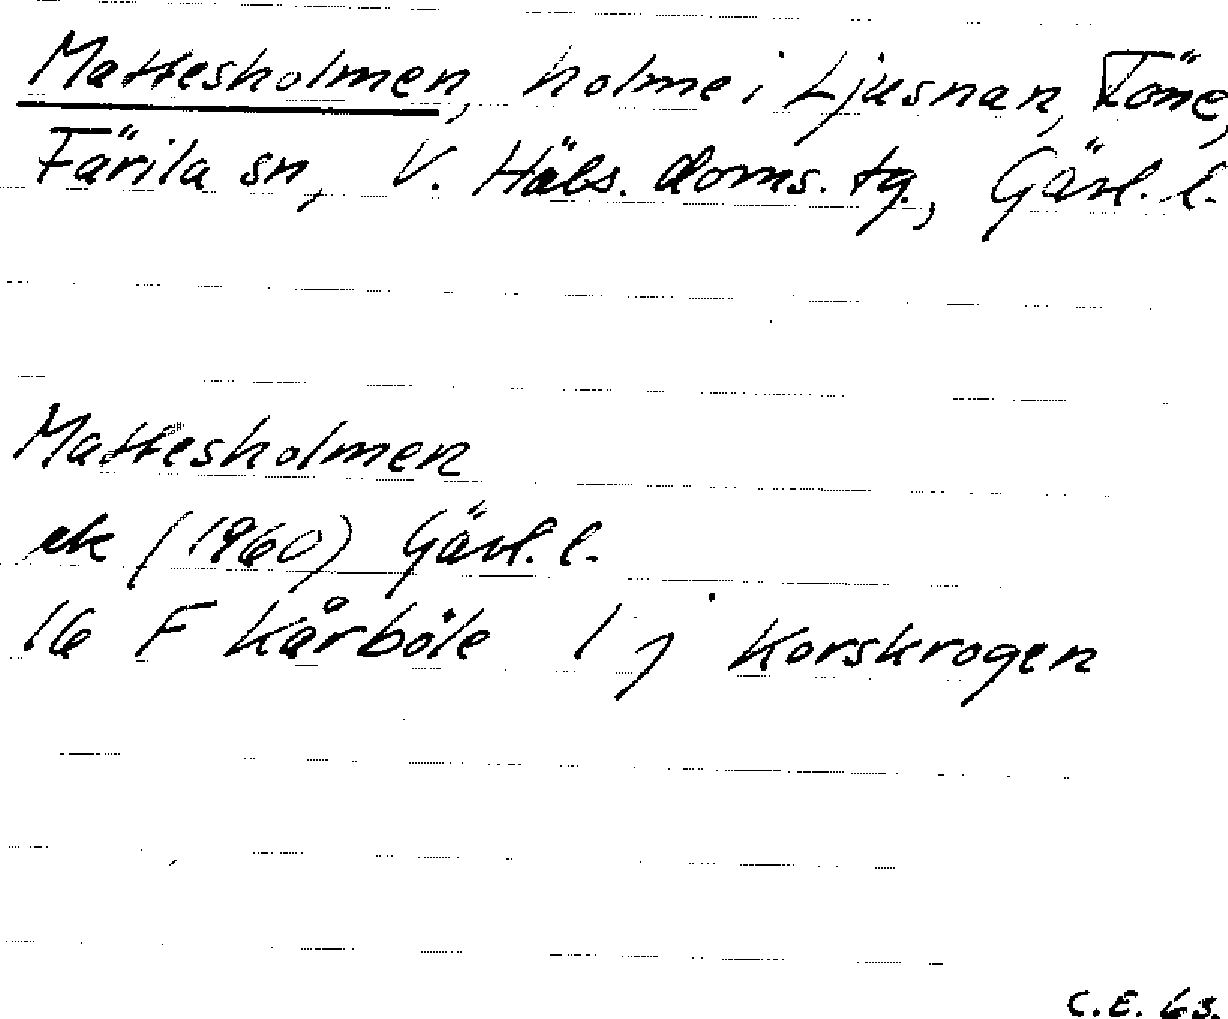 Mattesholmen, holme i Ljusnan, Föne,
Färila sn, V. Häls. doms. tg., Gävl. l.
Mattesholmen
ek (1960) Gävl. l.
16 F Kårböle 1 j Korskrogen
C.E. 63.